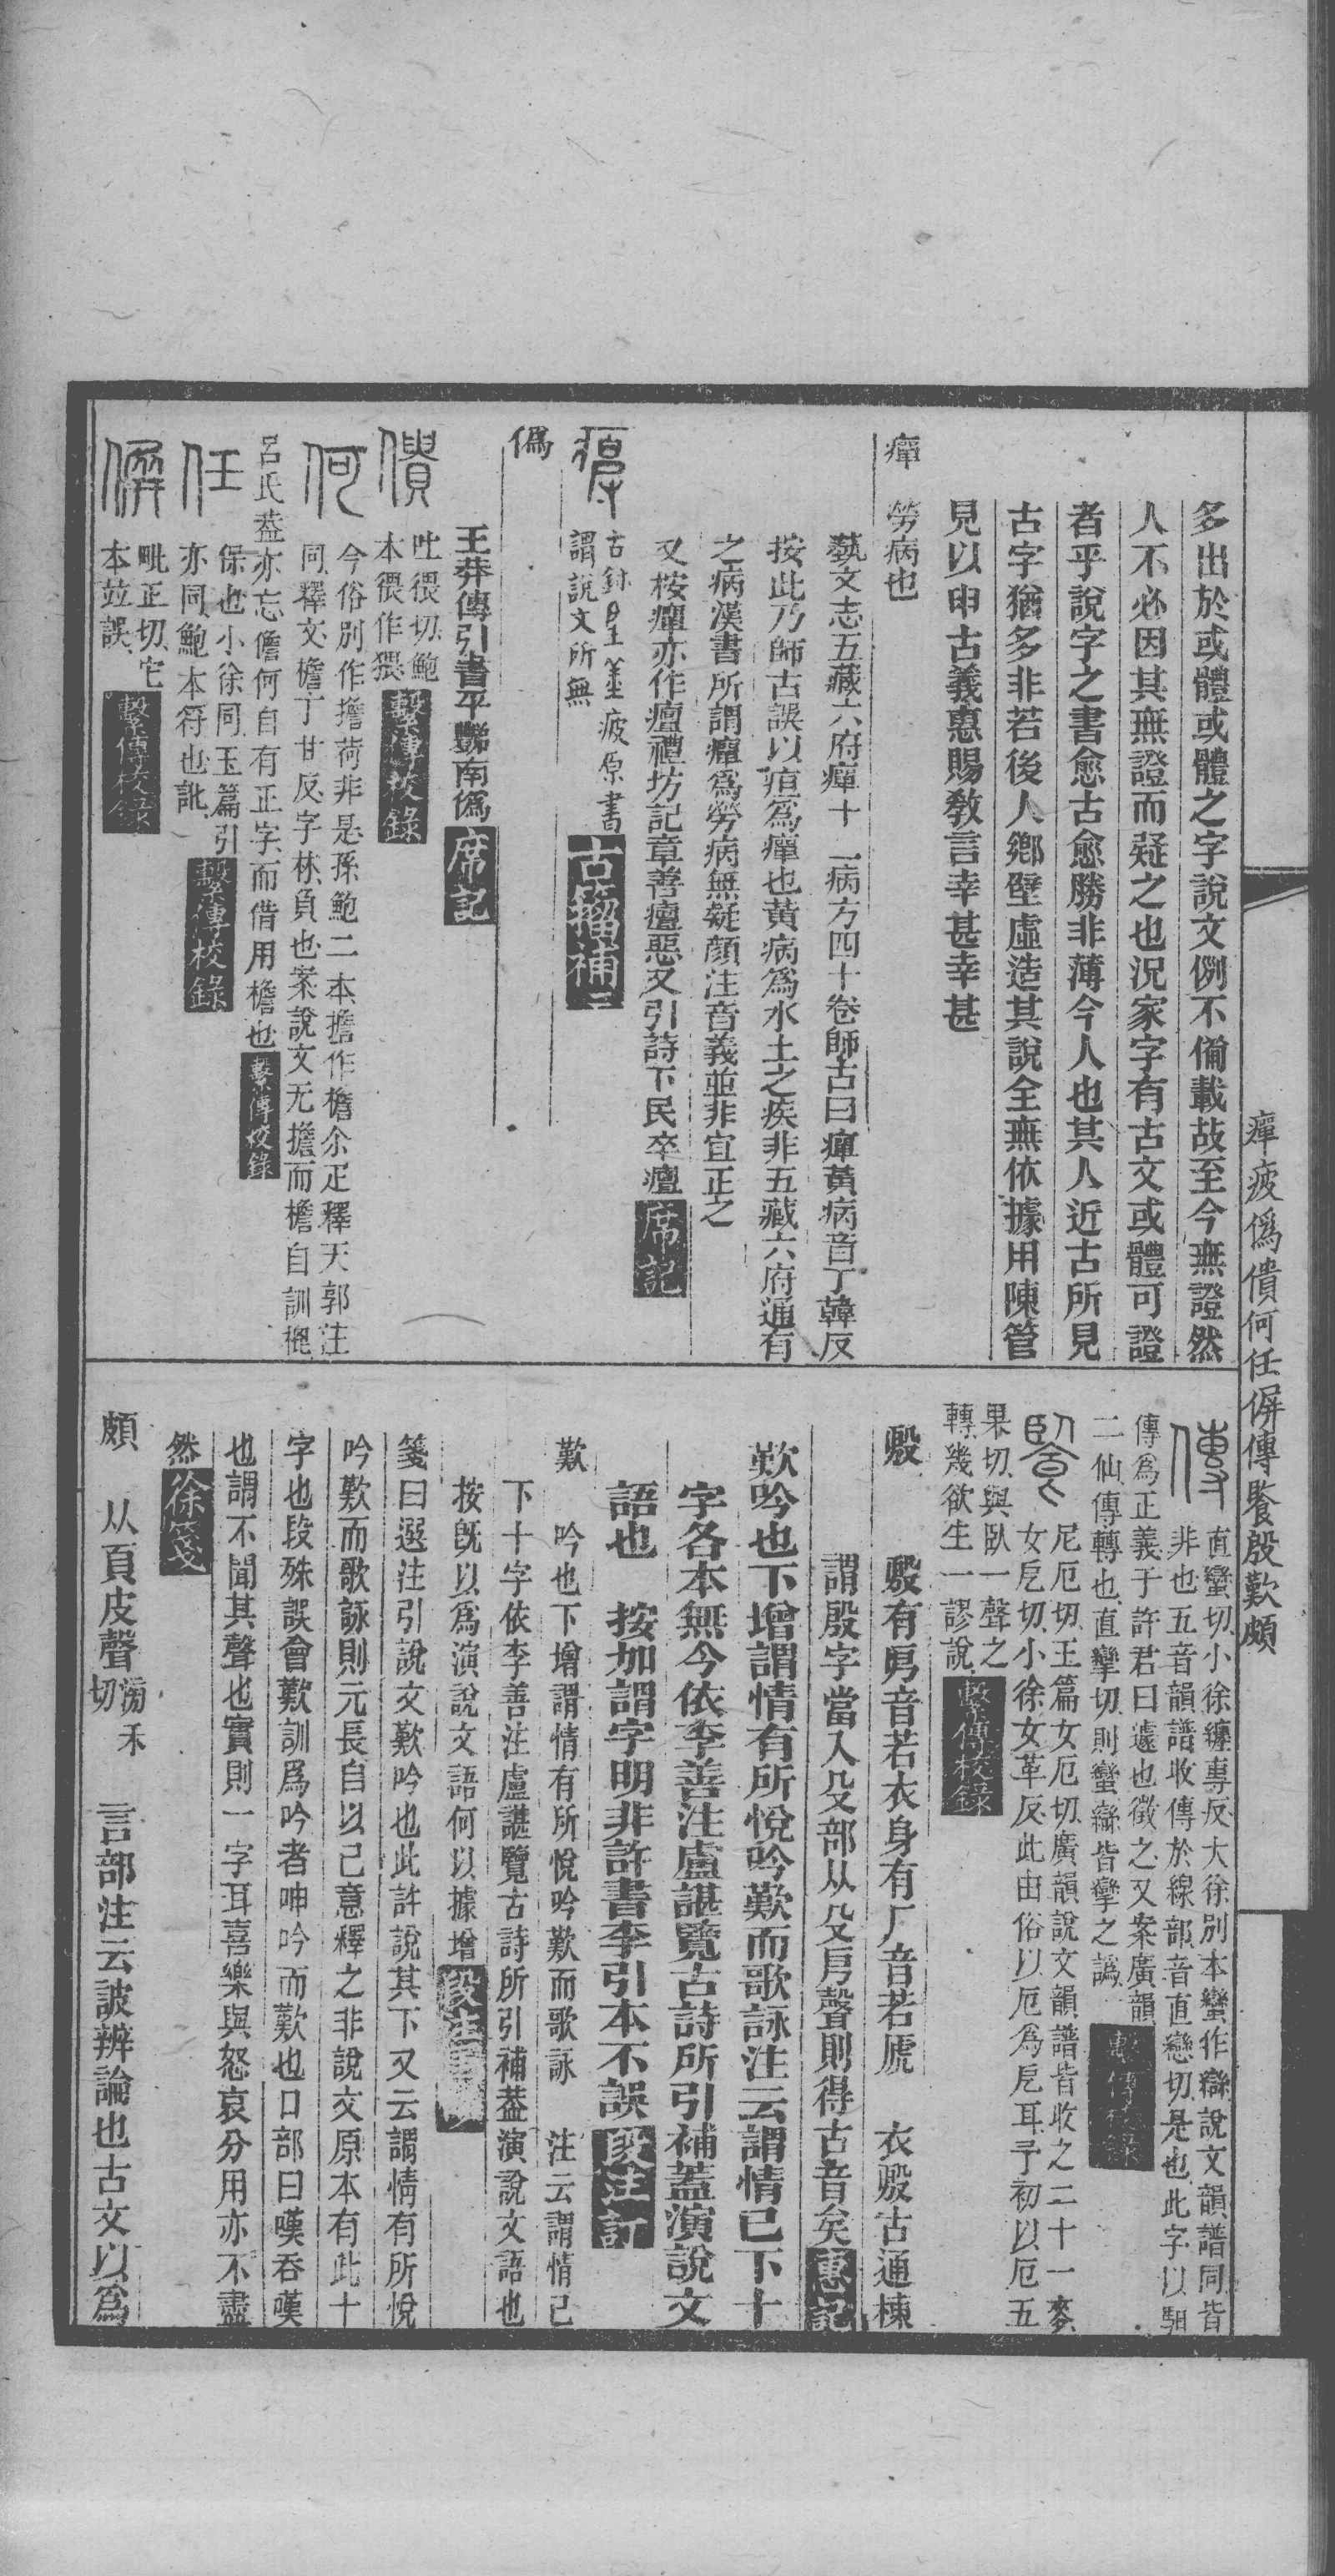 多出於或體或體之字說文例不備載故至今無證然
人不必因其無證而疑之也況家字有古文或體可證
者乎說字之書愈古愈勝非薄今人也其人近古所見
古字猶多非若後人鄉壁虛造其說全無依據用陳管
見以申古義惠賜教言幸甚幸甚
癉　勞病也
藝文志五藏六府癉十二病方四十卷師古曰癉黃病音丁韓反
按此乃師古誤以疸爲癉也黃病爲水土之疾非五藏六府通有
之病漢書所謂癉爲勞病無疑顏注音義並非宜正之
又桉癉亦作癉禮坊記章善癉惡又引詩下民卒癉席記
古鉥疲原書
謂說文所無古籀補三
僞
王莽傳引書平豑南僞席記
僓　吐猥切鮑
本猥作猥繫傳校錄
何　今俗別作擔荷非是孫鮑二本擔作檐尒疋釋天郭注
同釋文檐丁甘反字林負也案說文无擔而檐自訓梍
呂氏葢亦忘儋何自有正字而借用檐也繫傳校錄
任　保也小徐同玉篇引
亦同鮑本符也訛繫傳校錄
僻　毗正切宅
本竝誤繫傳校錄
癉疲僞僓何任偋傳䘐殷歎頗
傳　直蠻切小徐纏專反大徐別本蠻作䜌說文韻譜同皆
非也五音韻譜收傳於線部音直戀切是也此字以馹
傳爲正義于許君曰遽也徵之又案廣韻
二仙傳轉也直攣切則蠻䜌皆攣之譌繫傳校錄
䘐　尼厄切玉篇女厄切廣韻說文韻譜皆收之二十一麥
女戹切小徐女革反此由俗以厄爲戹耳予初以厄五
果切與臥一聲之
轉幾欲生一謬說繫傳校錄
殷　殷有身音若衣身有㐆音若虒　衣殷古通棟
謂殷字當入殳部从殳㐆聲則得古音矣惠記
歎吟也下增謂情有所悅吟歎而歌詠注云謂情已下十
字各本無今依李善注盧諶覽古詩所引補蓋演說文
語也　按加謂字明非許書李引本不誤段注訂
歎　吟也下增謂情有所悅吟歎而歌詠　注云謂情已
下十字依李善注盧諶覽古詩所引補葢演說文語也
按旣以爲演說文語何以據增
箋曰選注引說文歎吟也此許說其下又云謂情有所悅
吟歎而歌詠則元長自以己意釋之非說文原本有此十
字也段殊誤會歎訓爲吟者呻吟而歎也口部曰嘆吞嘆
也謂不聞其聲也實則一字耳喜樂與怒哀分用亦不盡
然徐箋
頗　从頁皮聲滂禾切　言部注云詖辨論也古文以爲